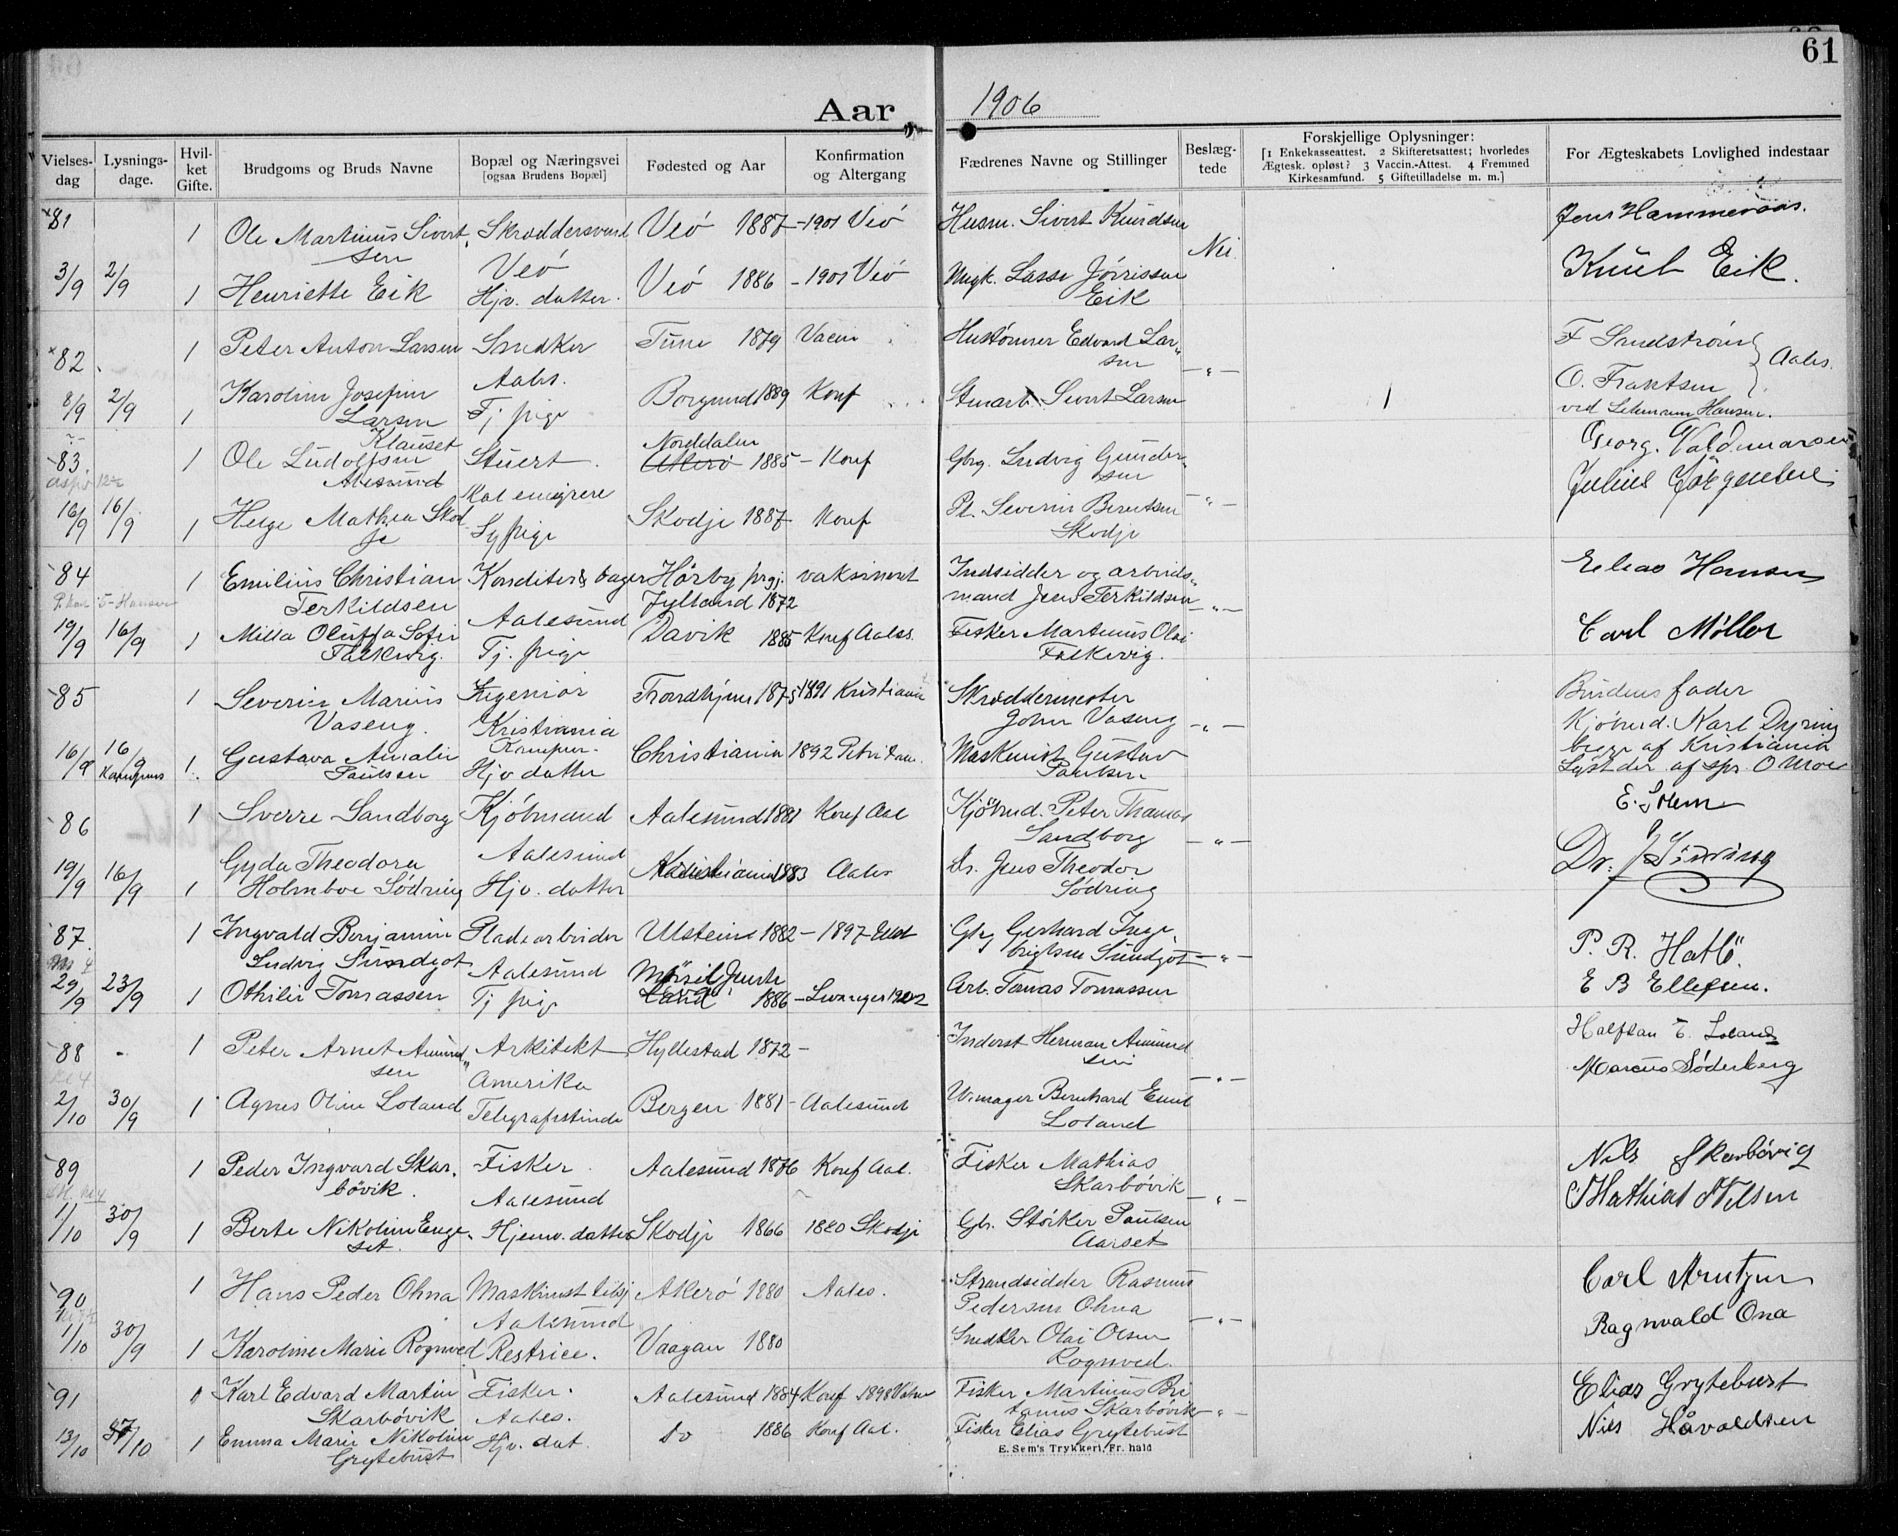 61
Aar 1906
Vielses-dag | Lysnings-dage. | Hvil-ket Gifte. | Brudgoms og Bruds Navne | Bopæl og Næringsvei [ogsaa Brudens Bopæl] | Fødested og Aar | Konfirmation og Altergang | Fædrenes Navne og Stillinger | Beslæg-tede | Forskjellige Oplysninger: [1 Enkekasseattest. 2 Skifteretsattest; hvorledes Ægtesk. opløst? 3 Vaccin.-Attest. 4 Fremmed Kirkesamfund. 5 Giftetilladelse m. m.] | For Ægteskabets Lovlighed indestaar
81 | 1 | Ole Martinus Sivertsen | Skræddersvend | Veö 1887 | 1901 Veö | Husm. Sivert Knudsen | Nei | Jens Hammeraas.
3/9 | 2/9 | 1 | Henriette Eik | Veö Hjv. datter. | Veö 1886 | 1901 Veö | Lasse Jörissen Eik | Knut Eik.
82 | 1 | Peter Anton Larsen | Snedker | Tune 1879 | Vaccin | Hustømmer Edvard Larsen | F Sandstrøm
8/9 | 2/9 | 1 | Karoline Josefine Larsen | Aales. Tj. pige | Borgund 1889 | Konf | Stuearb. Sivert Larsen | -"- | 1 | O. Frantsen } Aales. ved Lehmann Hansen.
83. | 1 | Ole Ludolfsen Klauset Alesund | Stuert. | Norddalen 1885 | Konf | Gbrg. Ludvig Gundersen | Georg. Valdemarsen
16/9 | 16/9 | 1 | Helge Mathea Skodje | skal emigrere Sypige | Skodje 1887 | Konf | Pl. Severin Berntsen Skodje | -"- | Julius Jörgensen
84 | 1 | Emilius Christian Terkildsen | Konditer & bager | Hörby prgj. Jylland 1872 | vaksineret | Indsidder og arbeidsmand Jens Terkildsen | -"- | Elias Hansen
19/9 | 16/9 | 1 | Milla Oluffa Sofie Falkevig. | Aalesund Tj. pige | Davik 1885 | Konf Aales. | Fisker Martinus Olai Falkevig. | Carl Møller
85 | 1 | Severin Marius Vaseng. | Ingeniør Kristiania | Trondhjem 1875 | 1891 Kristiania | Skræddermester John Vaseng | -"- | Brudens fader
16/9 | 16/9 Kampens | 1 | Gustava Amalie Paulsen | Kampen. Hjv datter | Christiania | 1892 Petri | Maskinist Gustav Paulsen | Kjøbmd. Karl Dyring begge af Kristiania Lyst der af spr. O Moe
86 | 1 | Sverre Sandborg | Kjöbmand | Aalesund 1881 | Konf Aal | Kjöbmd. Peter Thomas Sandborg | -"- | E. Solem
19/9 | 16/9 | 1 | Gyda Theodora Holmboe Södring | Aalesund Hjv. datter | Kristiania 1883 | Aales | Dr. Jens Theodor Södring | Dr. J Sødring
87. | 1 | Ingvald Benjamin Ludvig Sundgot | Pladearbeider | Ulstein 1882 | 1897 Ulst | Gbg Gerhard Ingebrigtsen Sundgot | -"- | P. R. Hatlö.
29/9 | 23/9 | 1 | Othilie Tomassen | Aalesund Tj pige | Mörsil Jemteland 1886 | Levanger 1902 | Arb. Tomas Tomassen | E B Ellefsen.
88 | 1 | Peter Arnet Amundsen | Arkitekt | Hyllestad 1872 | Inderst Herman Amundsen | Halfdan E. Loland
2/10 | 30/9 | 1 | Agnes Oline Loland | Amerika Telegrafistinde | Bergen 1881 | Aalesund | Urmager Bernhard Emil Loland | -"- | Marcus Söderberg
89 | 1 | Peder Ingvard Skarbövik. | Fisker | Aalesund 1876 | Konf Aal. | Fisker Mathias Skarbövik | -"- | Nils Skarbövig
1/10 | 30/9 | 1 | Berte Nikoline Engeset. | Aalesund Hjemv. datter | Skodje 1866 | 1880 Skodje | Gbr. Störker Paulsen Aarset | Mathias Nilsen
90 | 1 | Hans Peder Ohna | Maskinist | Akerö 1880 | Aales. | Strandsidder Rasmus Pedersen Ohna | Carl Arntzen
1/10 | 30/9 | 1 | Karoline Marie Rognved | Aalesund Restrice. | Vaagan 1880 | Snedker Olai Olsen Rognved. | -"- | Ragnvald Ona
91 | 1 | Karl Edvard Martin Skarbövik | Fisker. | Aalesund 1884 | Konf 1898 | Fisker Martinus Britanus Skarbövik | -"- | Elias Grytebust
13/10 | 7/10 | 1 | Emma Marie Nikoline Grytebust | Aales. Hjv. dat. | do 1886 | Konf Aal. | Fisker Elias Grytebust | Nils Håvoldsen
E. Sem's Trykkeri, Fr. hald